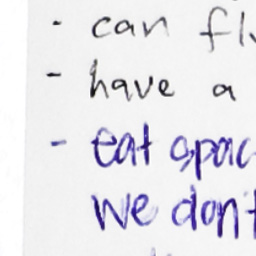 - can fl
- have a
- eat spac
we don't